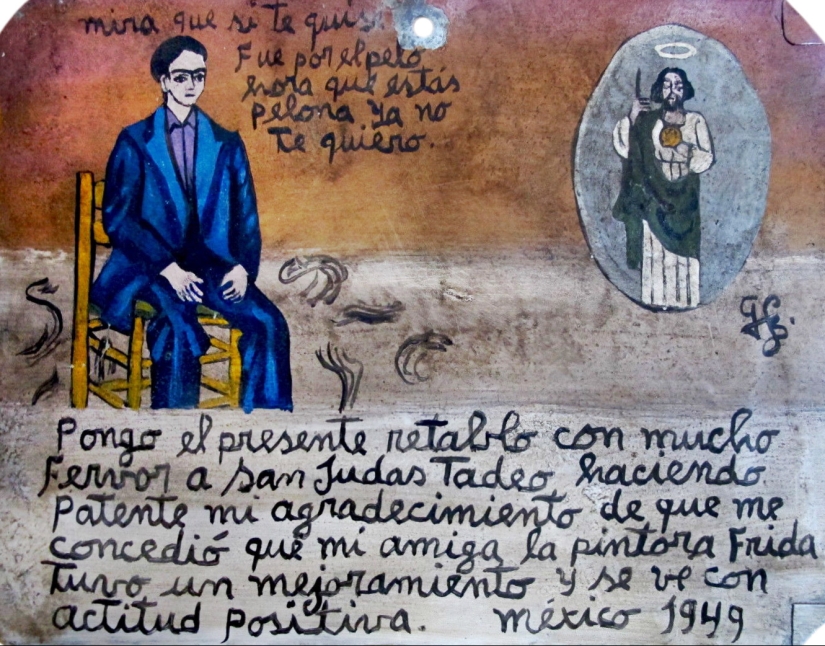 mira que si te quise
Fue por el pelo
hora que estás
pelona ya no
te quiero.
Pongo el presente retablo con mucho
Fervor a San Judas Tadeo haciendo
Patente mi agradecimiento de que me
concedió que mi amiga la pintora Frida
Tuvo un mejoramiento y se ve con
actitud positiva. méxico 1949